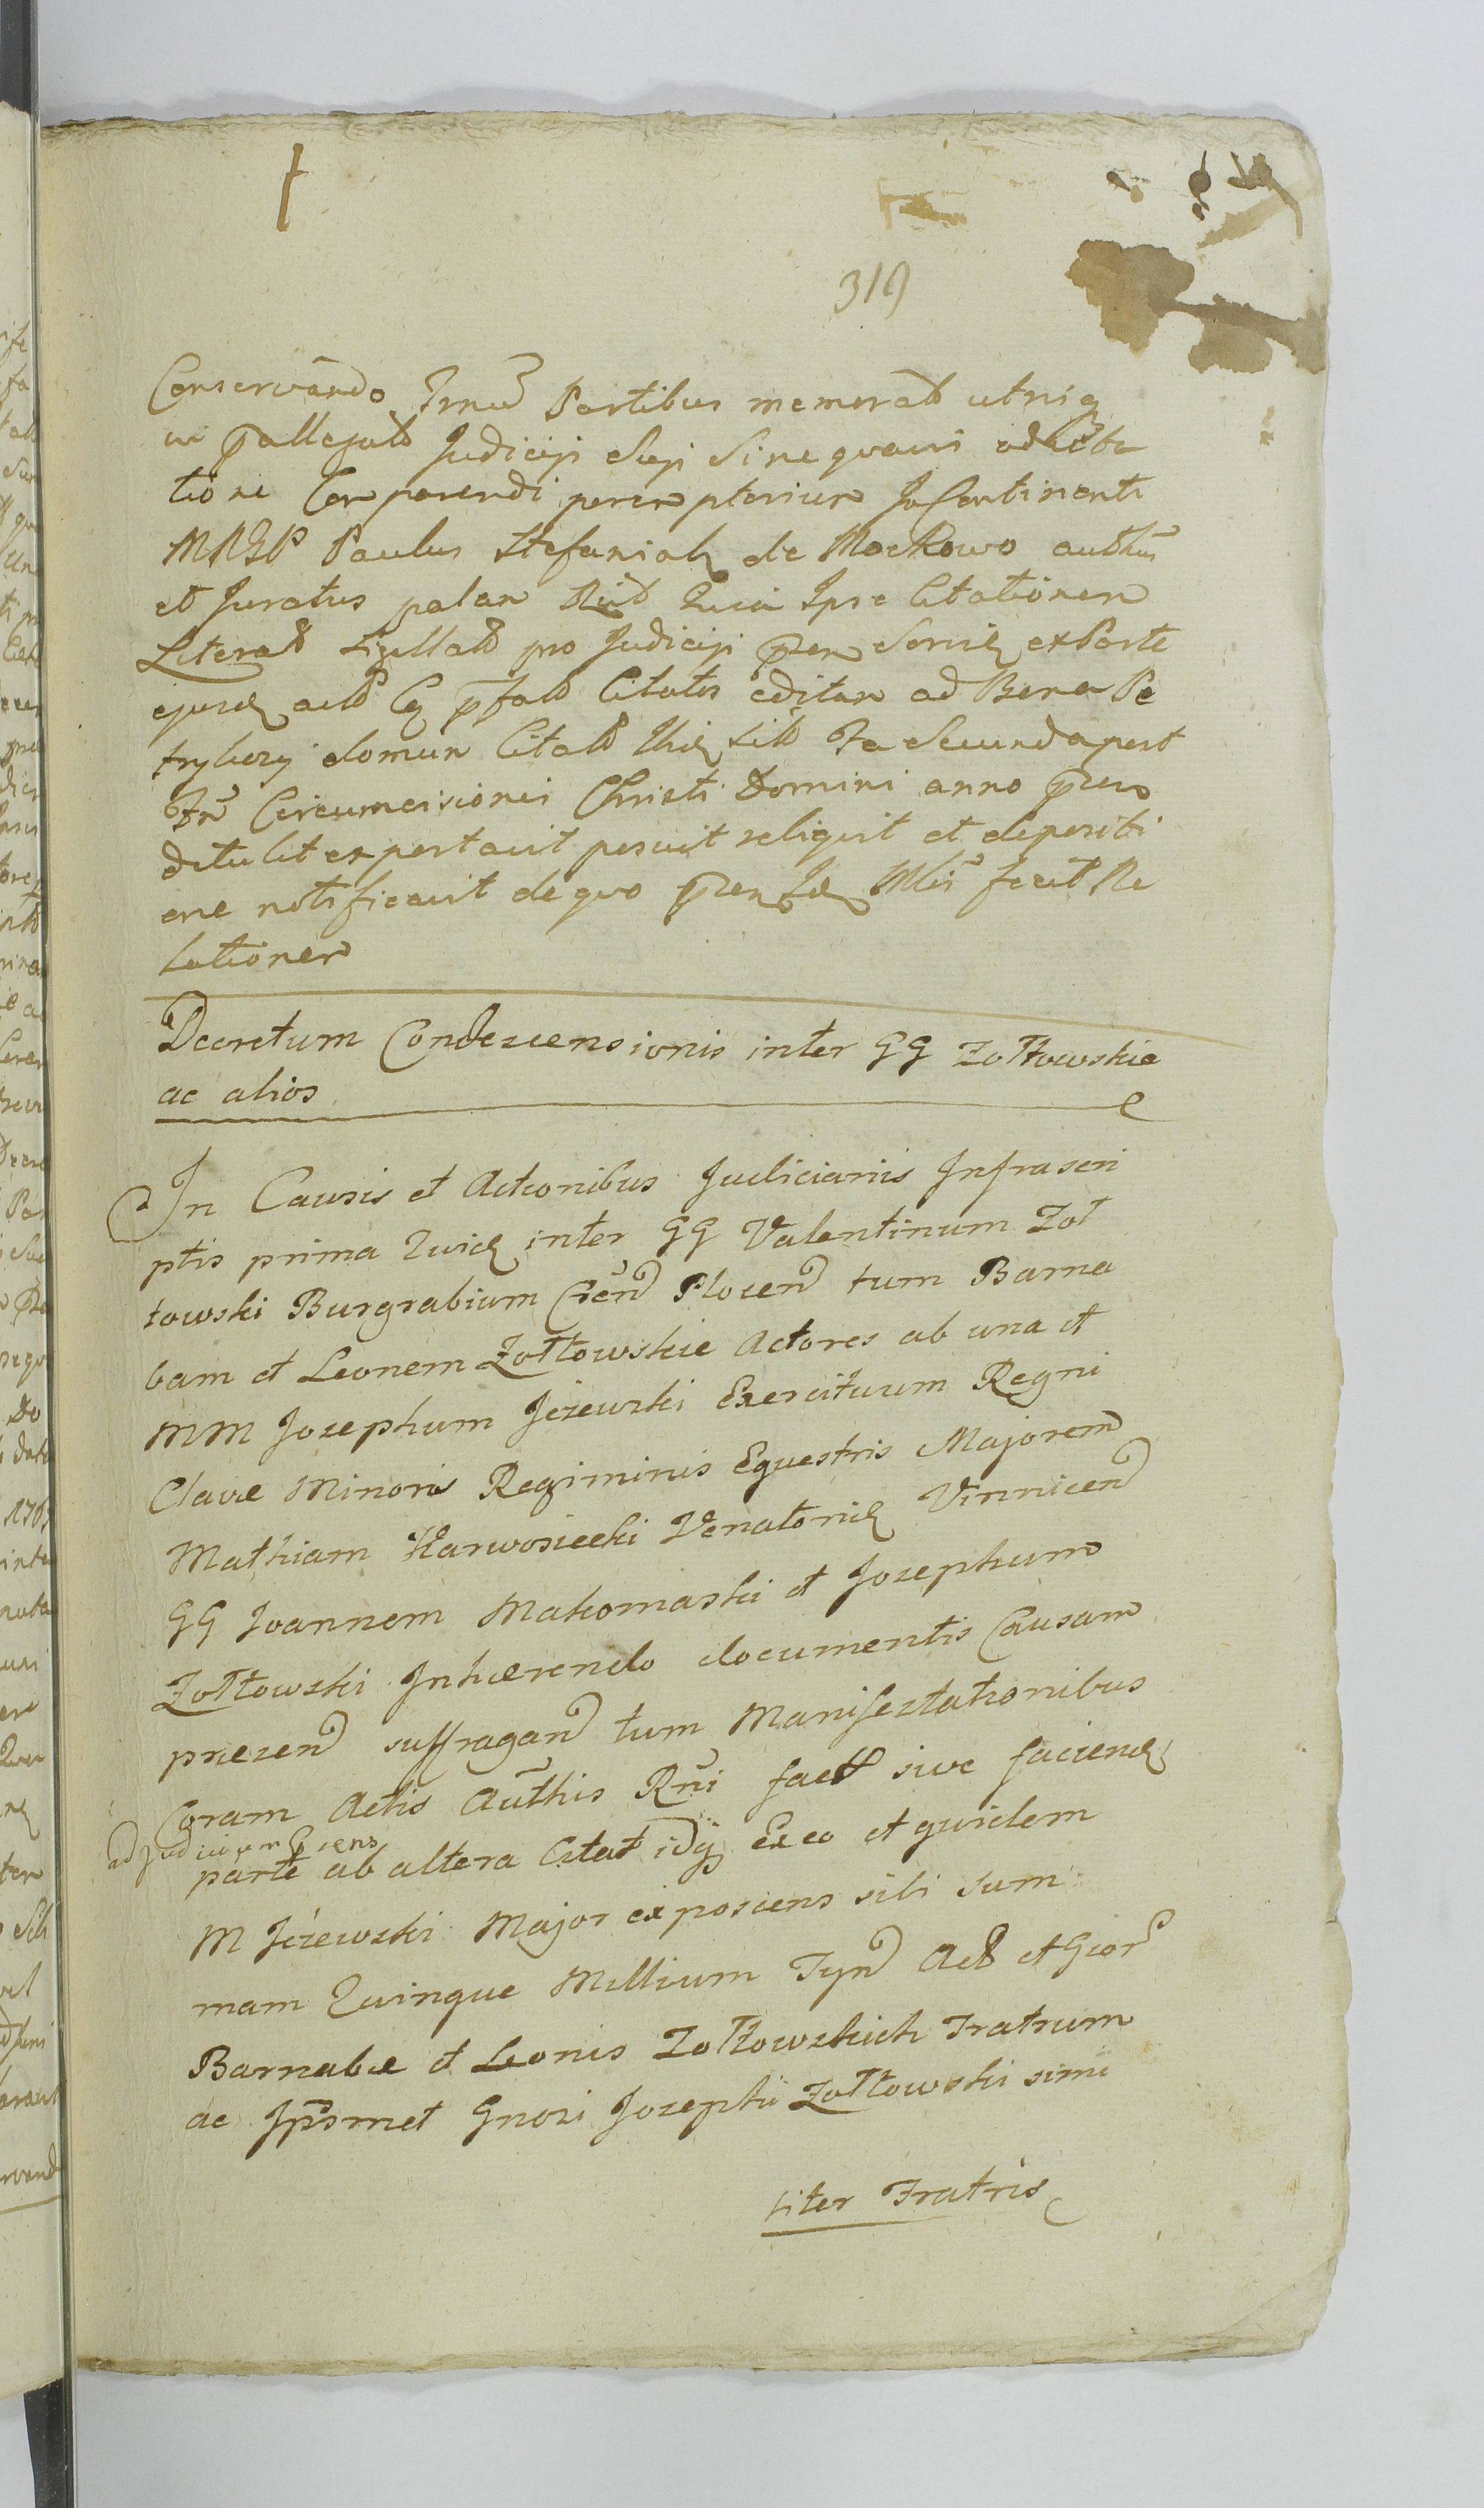 319
Conservando Trnũ Partibus memorat utriq
in p̃allegat Judicij Sui Sine quavi adCita
tione Comparendi peremptorium In Continenti
MRGP Paulus Stefaniak de Mockowo auth̃us
et Juratus palam Rũt Quia Ipse Citationem
Literat Sigillat pro Judicij p̃en Serie ex Parte
ejusd act Cẽ p̃fat Citatis editam ad Bona Pe
trykozy domum Citat Ibid sit Fa Secunda post
Ft̃m Circumcisionis Christi Domini anno p̃en
detulit exportavit posuit reliquit et depositi
one notificavit de quo p̃en Id Mlr̃ fecit Re
lationem
Decretum Condescensionis inter GG Zołtowskie
ac alios
In Causis et Actionibus Judiciariis Infrascri
ptis prima Quid inter GG Valentinum Zoł
towski Burgrabium Cren Plocen tum Barna
bam et Leonem Zołtowskie Actores ab una et
MM Josephum Jeżewski Exercituum Regni
Clavæ Minoris Regiminis Equestris Majorem
Mathiam Karwosiecki Venatorid Vinnicen
GG Joannem Makomaski et Josephum
Zołtowski Inhærendo documentis Causam
præsen suffragan tum Manifestationibus
Coram Actis Auth̃is Rñi fact sive faciend
ad Judicium p̃sens
parte ab altera Citat idq Ex eo et quidem
M Jeżewski Major exposcens sibi Sum
mam Quinque Millium Tyn Act et Gnor
Barnabæ et Leonis Zołtowskich Fratrum
ac Ip̃smet Gnosi Josephi Zołtowski simi
liter Fratris